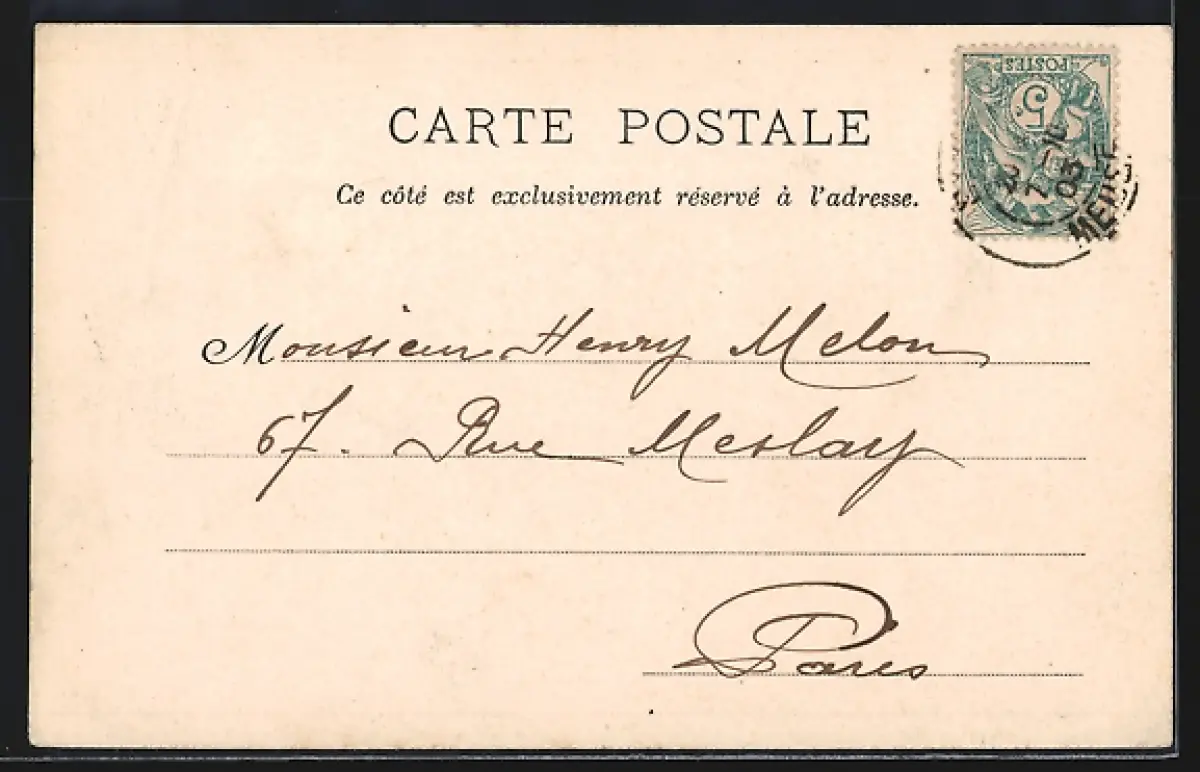 CARTE POSTALE
Ce côté est exclusivement réservé à l'adresse.
POSTES
5
03
Monsieur Henry Melon
67. Rue Meslay
Paris